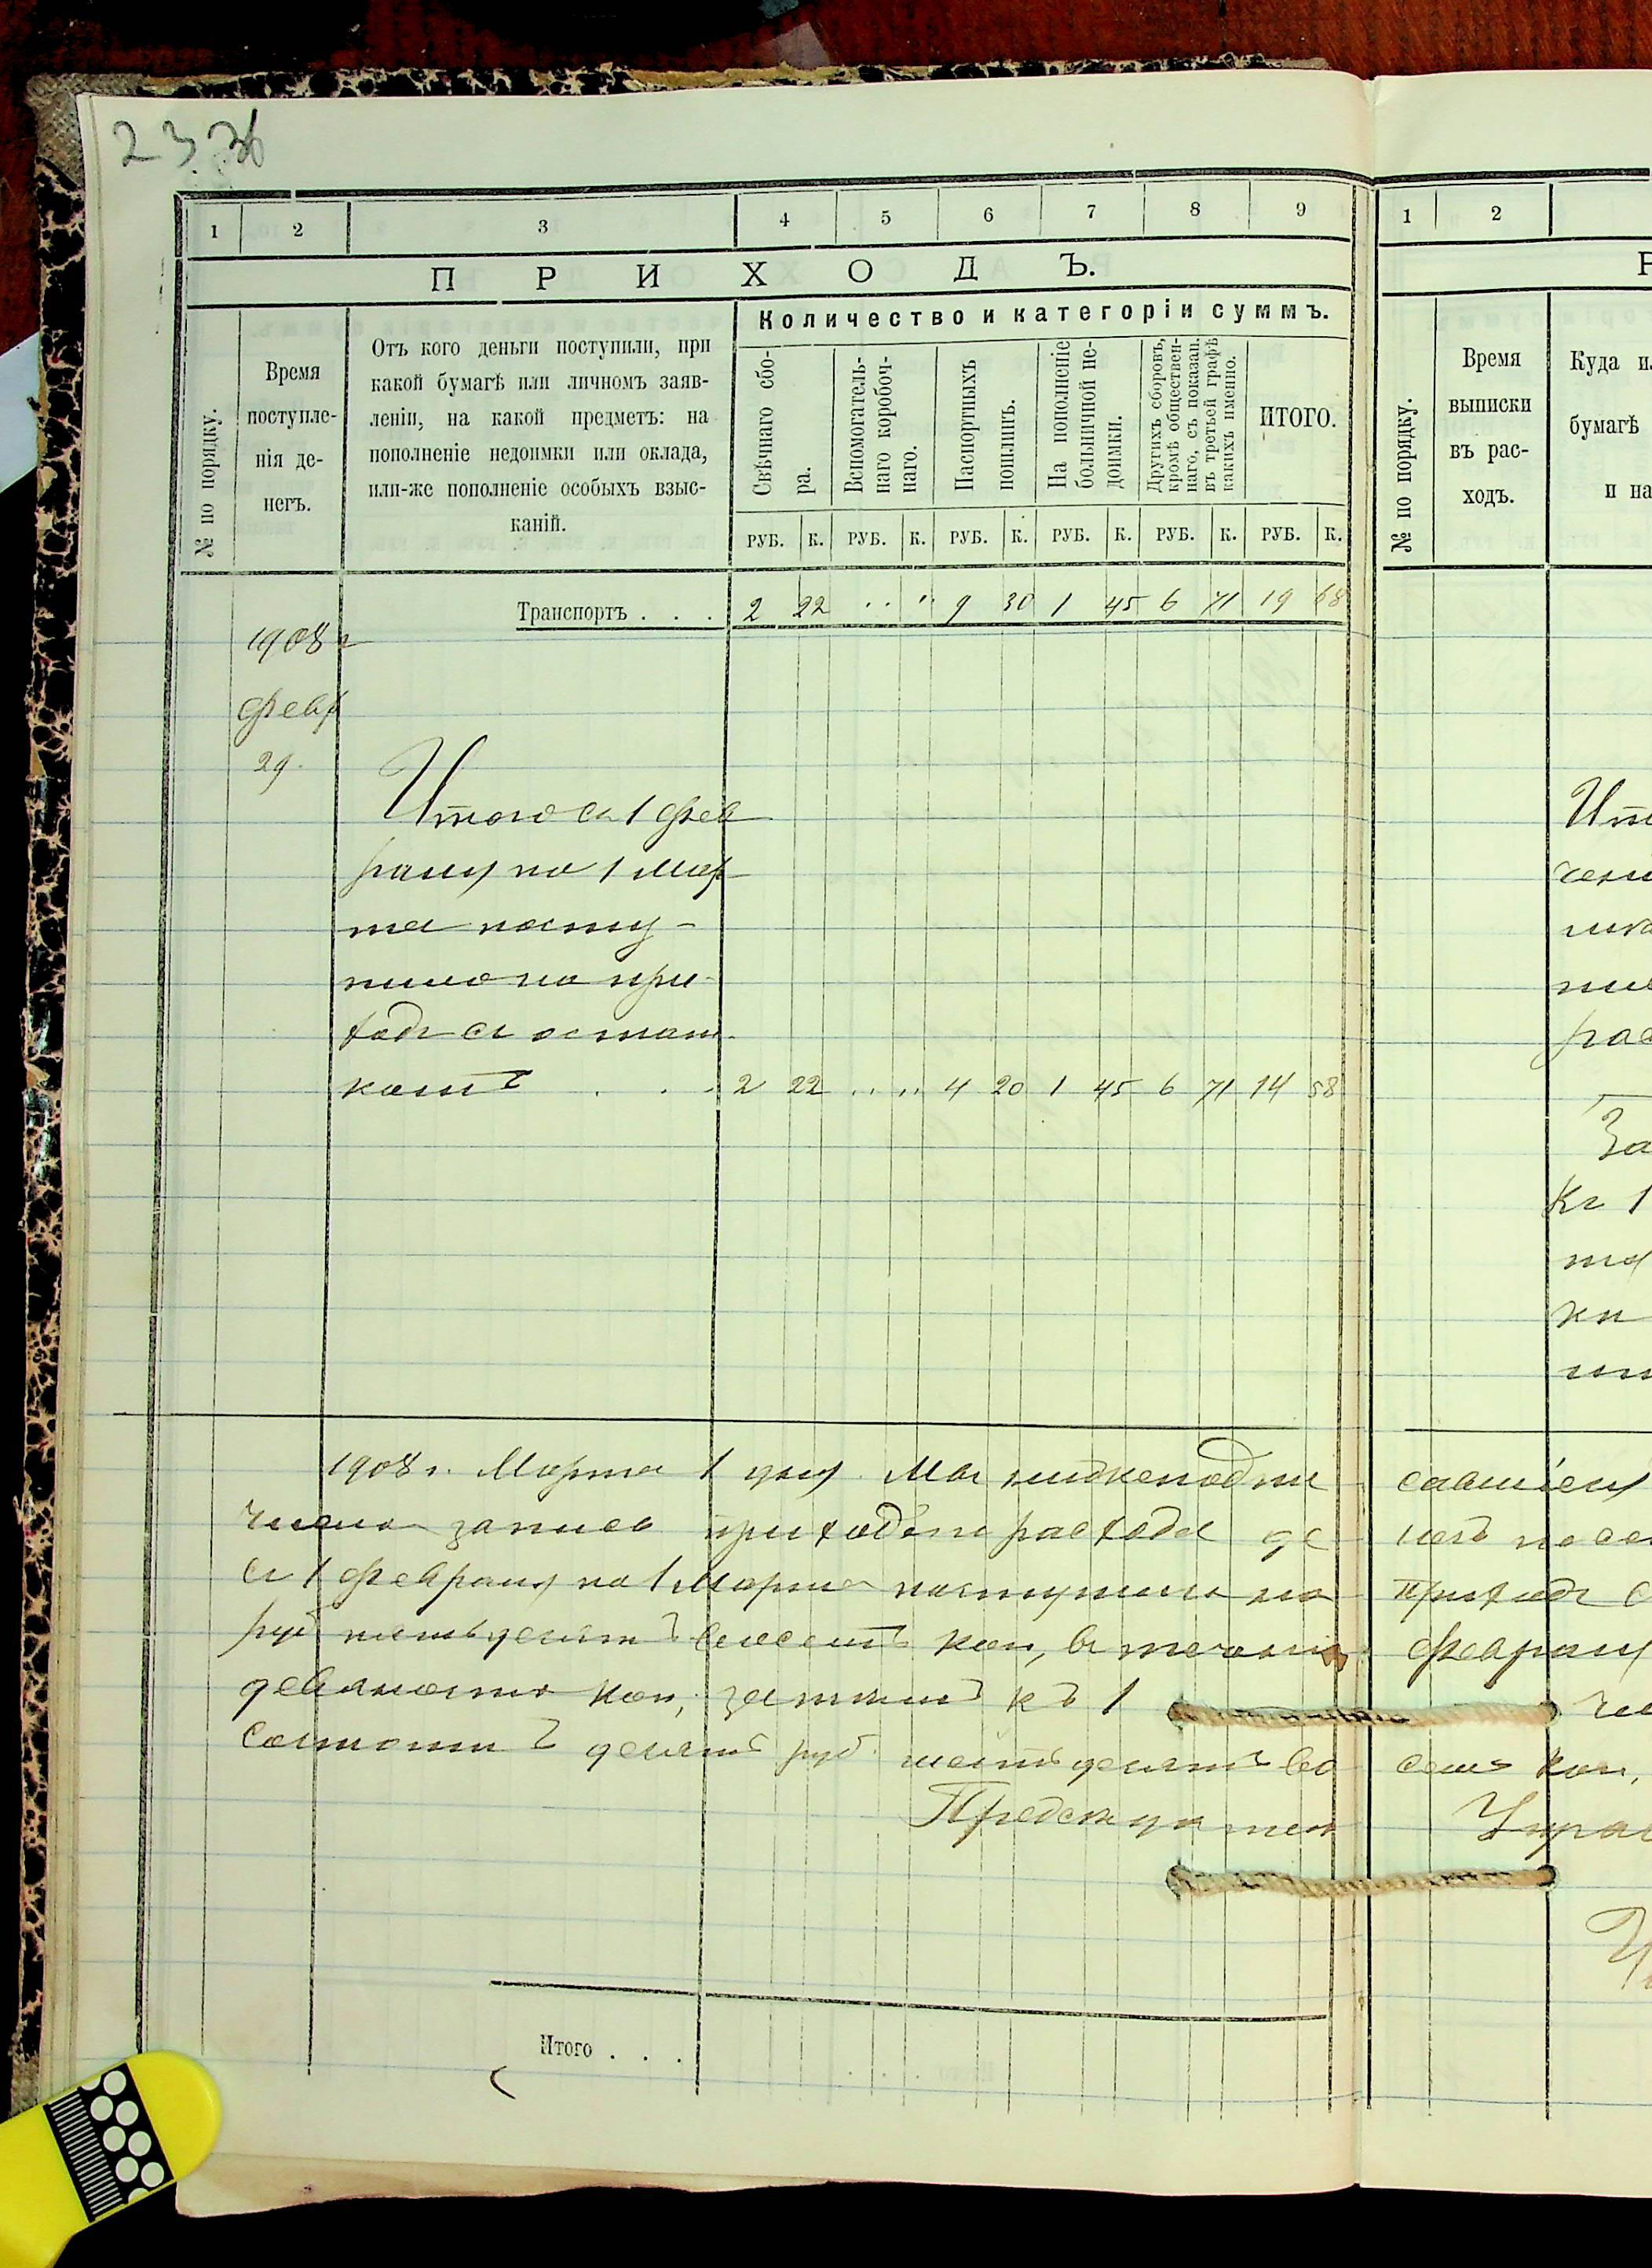 23. 36
1 2 3 4 5 6 7 8 9
ПРИХОДЪ.
№ по порядку.
Время
поступле-
нія де-
негъ.
Отъ кого деньги поступили, при
какой бумагѣ или личномъ заяв-
леніи, на какой предметъ: на
пополненіе недоимки или оклада,
или-же пополненіе особыхъ взыс-
каній.
Количество и категоріи суммъ.
Свѣчнаго сбо-
ра.
Вспомогатель-
наго коробоч-
наго.
Паспортныхъ
пошлинъ.
На пополненіе
больничной не-
доимки.
Другихъ сборовъ,
кромѣ обществен-
наго, съ показан.
въ третьей графѣ
какихъ именно.
ИТОГО.
РУБ. К. РУБ. К. РУБ. К. РУБ. К. РУБ. К. РУБ. К.
Транспортъ . . . 2 22 " " 9 30 1 45 6 71 19 68
1908 г
Февр
29.
Итого съ 1 Фев
раля по 1 Мар
та посту-
пило на при-
ходъ съ остат-
комъ . . . 2 22 " " 4 20 1 45 6 71 14 58
1908 г. Марта 1 дня. Мы нижеподпи
числа записа прихода и расхода де
съ 1 Февраля по 1 Марта поступило на
руб пятьдесятъ восемь коп, въ теченіи
девяносто коп, затемъ къ 1
состоитъ девять руб. шестьдесятъ во
Председатель
Итого . . .
1 2
Р
№ по порядку.
Время
выписки
въ рас-
ходъ.
Куда и
бумагѣ
и на
Ит
чени
рас
За
Къ 1
савшіеся
приходъ с
Февраля
семь коп,
Управ